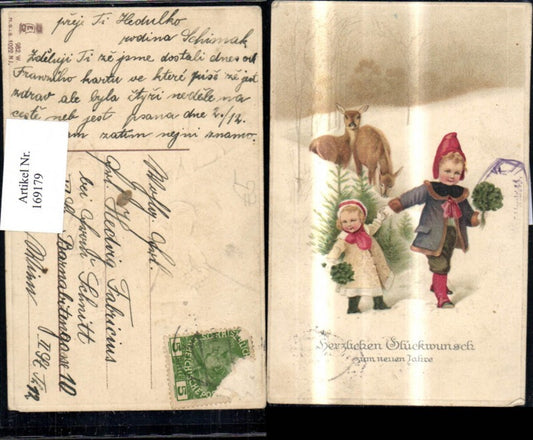 přeji Ti Hedulko
rodina Schimak
Zděluji Ti že jsme dostali dnes od
Franzího kartu ve které píše že jest
zdrav ale byla čtyři neděle na
cestě neb jest psana dne 2/12.
zatím nejni znamo.
M.S.i.B.
962. W.
1022 N.
Artikel Nr.
169179
Wohlg.
Hedwig Fabricius
bei Schmitt
Barnabitengasse 10
Wien
5
5
Herzlichen Glückwunsch
zum neuen Jahre